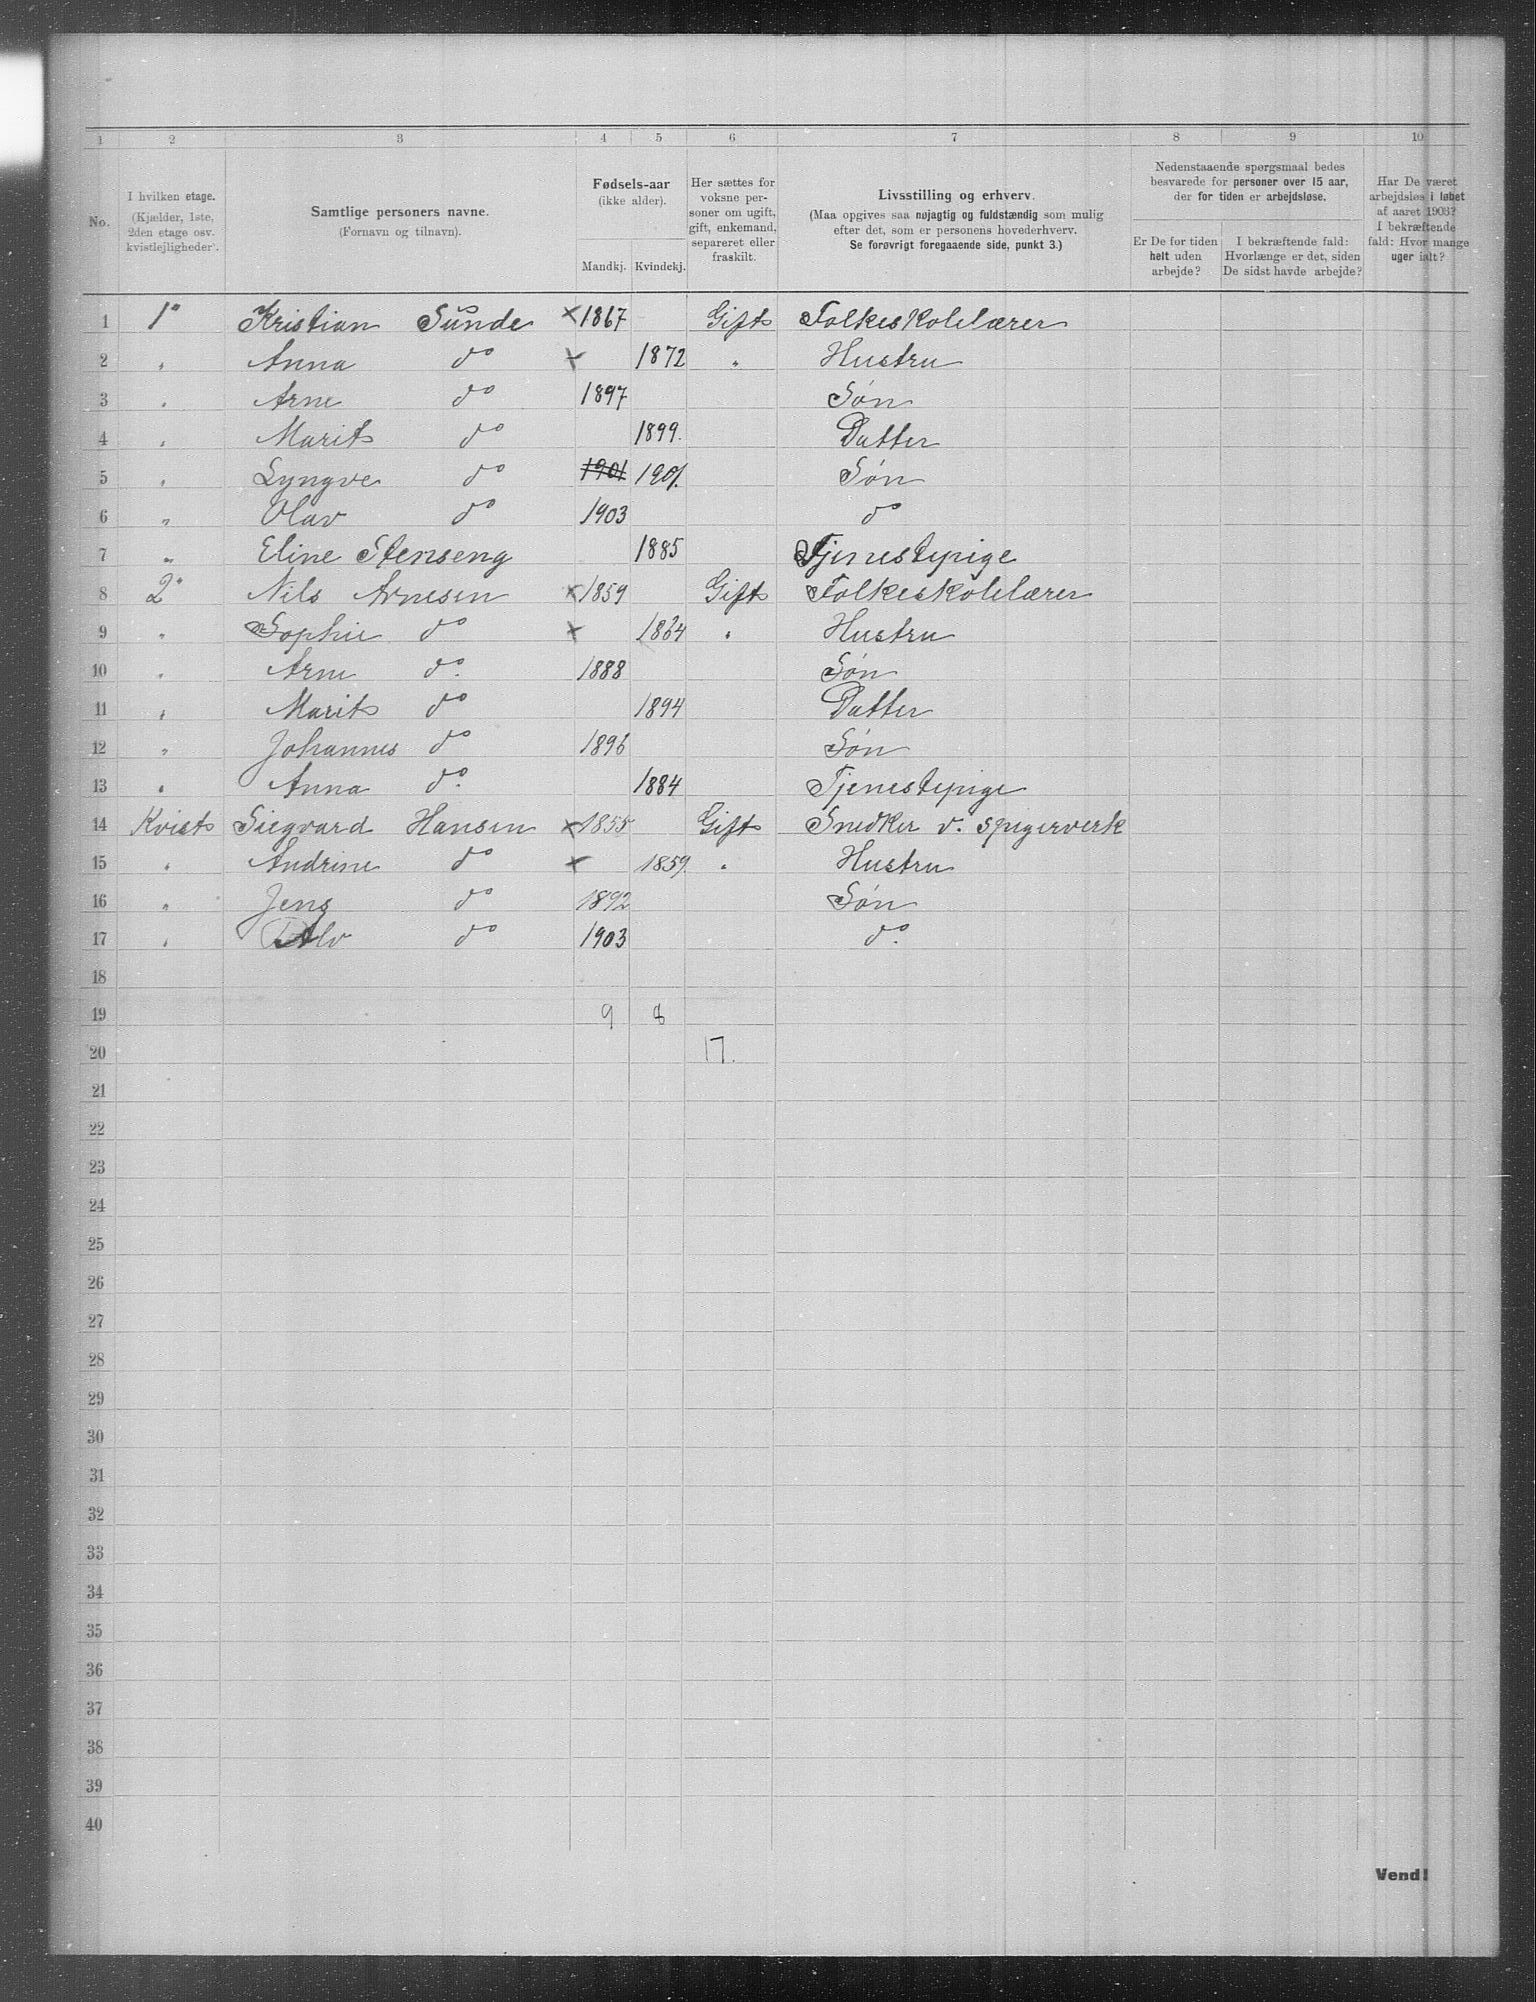 1 2 3 4 5 6 7 8 9 10
No.
I hvilken etage.
(Kjælder, 1ste,
2den etage osv.
kvistlejligheder).
Samtlige personers navne.
(Fornavn og tilnavn).
Fødsels-aar
(ikke alder).
Mandkj. Kvindekj.
Her sættes for
voksne per-
soner om ugift,
gift, enkemand,
separeret eller
fraskilt.
Livsstilling og erhverv.
(Maa opgives saa nøjagtig og fuldstændig som mulig
efter det, som er personens hovederhverv.
Se forøvrigt foregaaende side, punkt 3.)
Nedenstaaende spørgsmaal bedes
besvarede for personer over 15 aar,
der for tiden er arbejdsløse.
Er De for tiden
helt uden
arbejde?
I bekræftende fald:
Hvorlænge er det, siden
De sidst havde arbejde?
Har De været
arbejdsløs i løbet
af aaret 1903?
I bekræftende
fald: Hvor mange
uger ialt?
1 1° Kristian Sunde × 1867 Gift Folkeskolelærer
2 " Anna do × 1872 " Hustru
3 " Arne do 1897 Søn
4 " Marit do 1899. Datter
5 " Lyngve do 1901 1901. Søn
6 " Olav do 1903 do
7 " Eline Stenseng 1885 Tjenestepige
8 2° Nils Arnesen × 1859 Gift Folkeskolelærer
9 " Sophie do × 1864 " Hustru
10 " Arne do. 1888 Søn
11 " Marit do 1894 Datter
12 " Johannes do 1896 Søn
13 " Anna do. 1884 Tjenestepige
14 Kvist Siegvard Hansen × 1855 Gift Snedker v. spigerverk
15 " Andrine do × 1859. " Hustru
16 " Jens do 1892 Søn
17 " Alv do 1903 do.
18
19 9 8
20 17.
21
22
23
24
25
26
27
28
29
30
31
32
33
34
35
36
37
38
39
40
Vend!